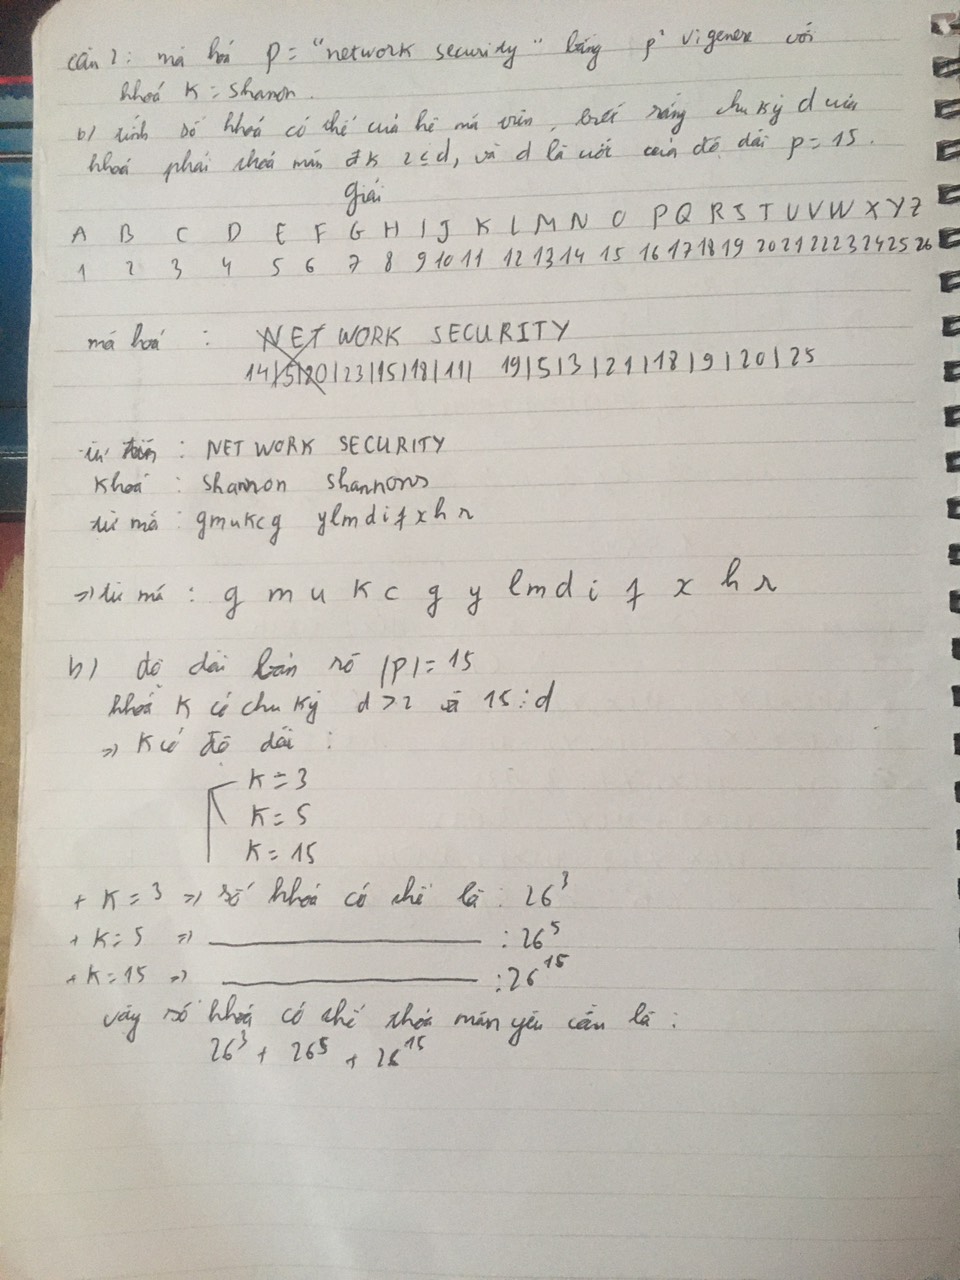 Câu 2: mã hoá P = "network security" bằng p² vigenere với
khoá K = Shanon.
b) tính số khoá có thể của hệ mã trên, biết rằng chu kỳ d của
khoá phải thoả mãn đk 2 ≤ d, và d là ước của độ dài p = 15.
Giải
A B C D E F G H I J K L M N O P Q R S T U V W X Y Z
1 2 3 4 5 6 7 8 9 10 11 12 13 14 15 16 17 18 19 20 21 22 23 24 25 26
mã hoá : NET WORK SECURITY
14|5|20|23|15|18|11| 19|5|3|21|18|9|20|25
: NET WORK SECURITY
Khoá : Shannon Shannons
từ mã : gmukcg ylmdifxhr
=> từ mã : g m u k c g y l m d i f x h r
b) độ dài bản rõ |P| = 15
khoá K có chu kỳ d > 2 và 15 ⋮ d
=> K có độ dài :
K = 3
K = 5
K = 15
+ K = 3 => số khoá có thể là : 26³
+ K = 5 => : 26⁵
+ K = 15 => : 26¹⁵
vậy số khoá có thể thoả mãn yêu cầu là :
26³ + 26⁵ + 26¹⁵